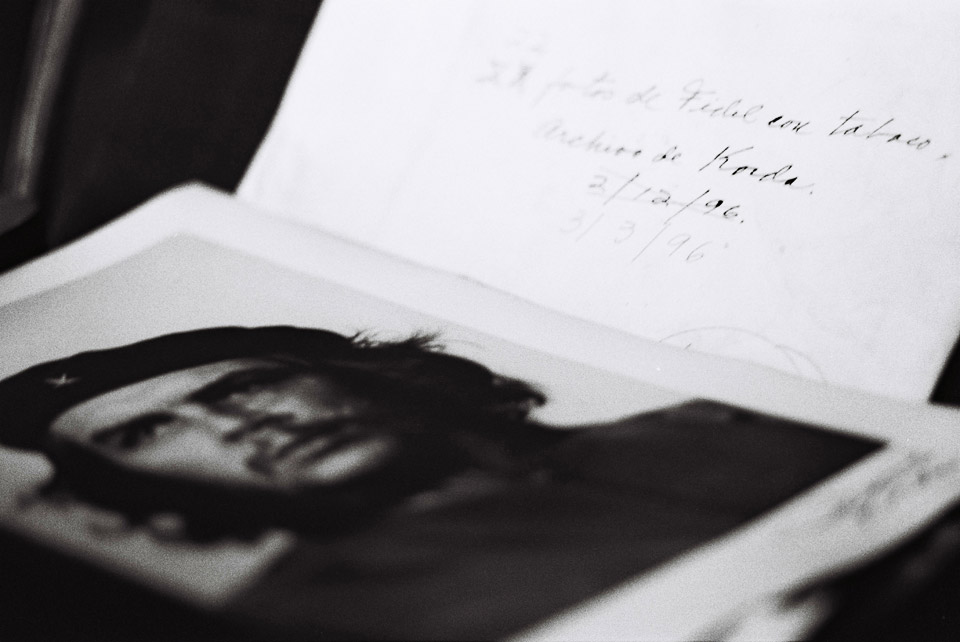 fotos de Fidel con tabaco.
Archivo de Korda.
2/12/96.
3/3/96